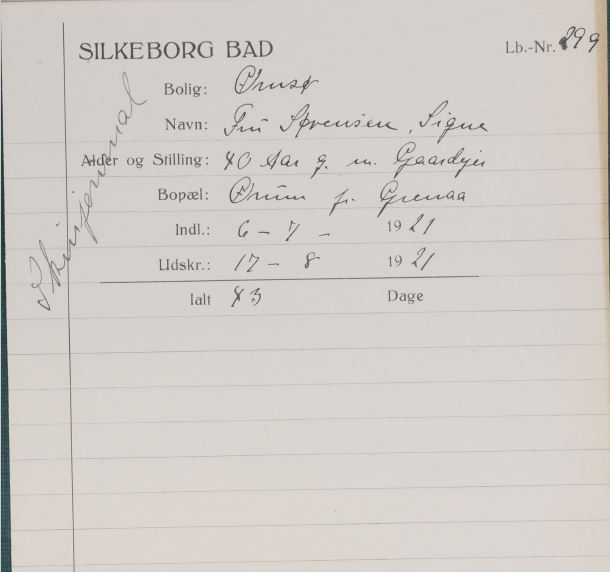 SILKEBORG BAD
Lb.-Nr. 299
Bolig: Ørnsø
Navn: Fru Sørensen, Signe
Alder og Stilling: 40 Aar g. m. Gaardejer
Bopæl: Ørum pr. Grenaa
Indl.: 6 - 7 - 1921
Udskr.: 17 - 8 1921
Ialt 43 Dage